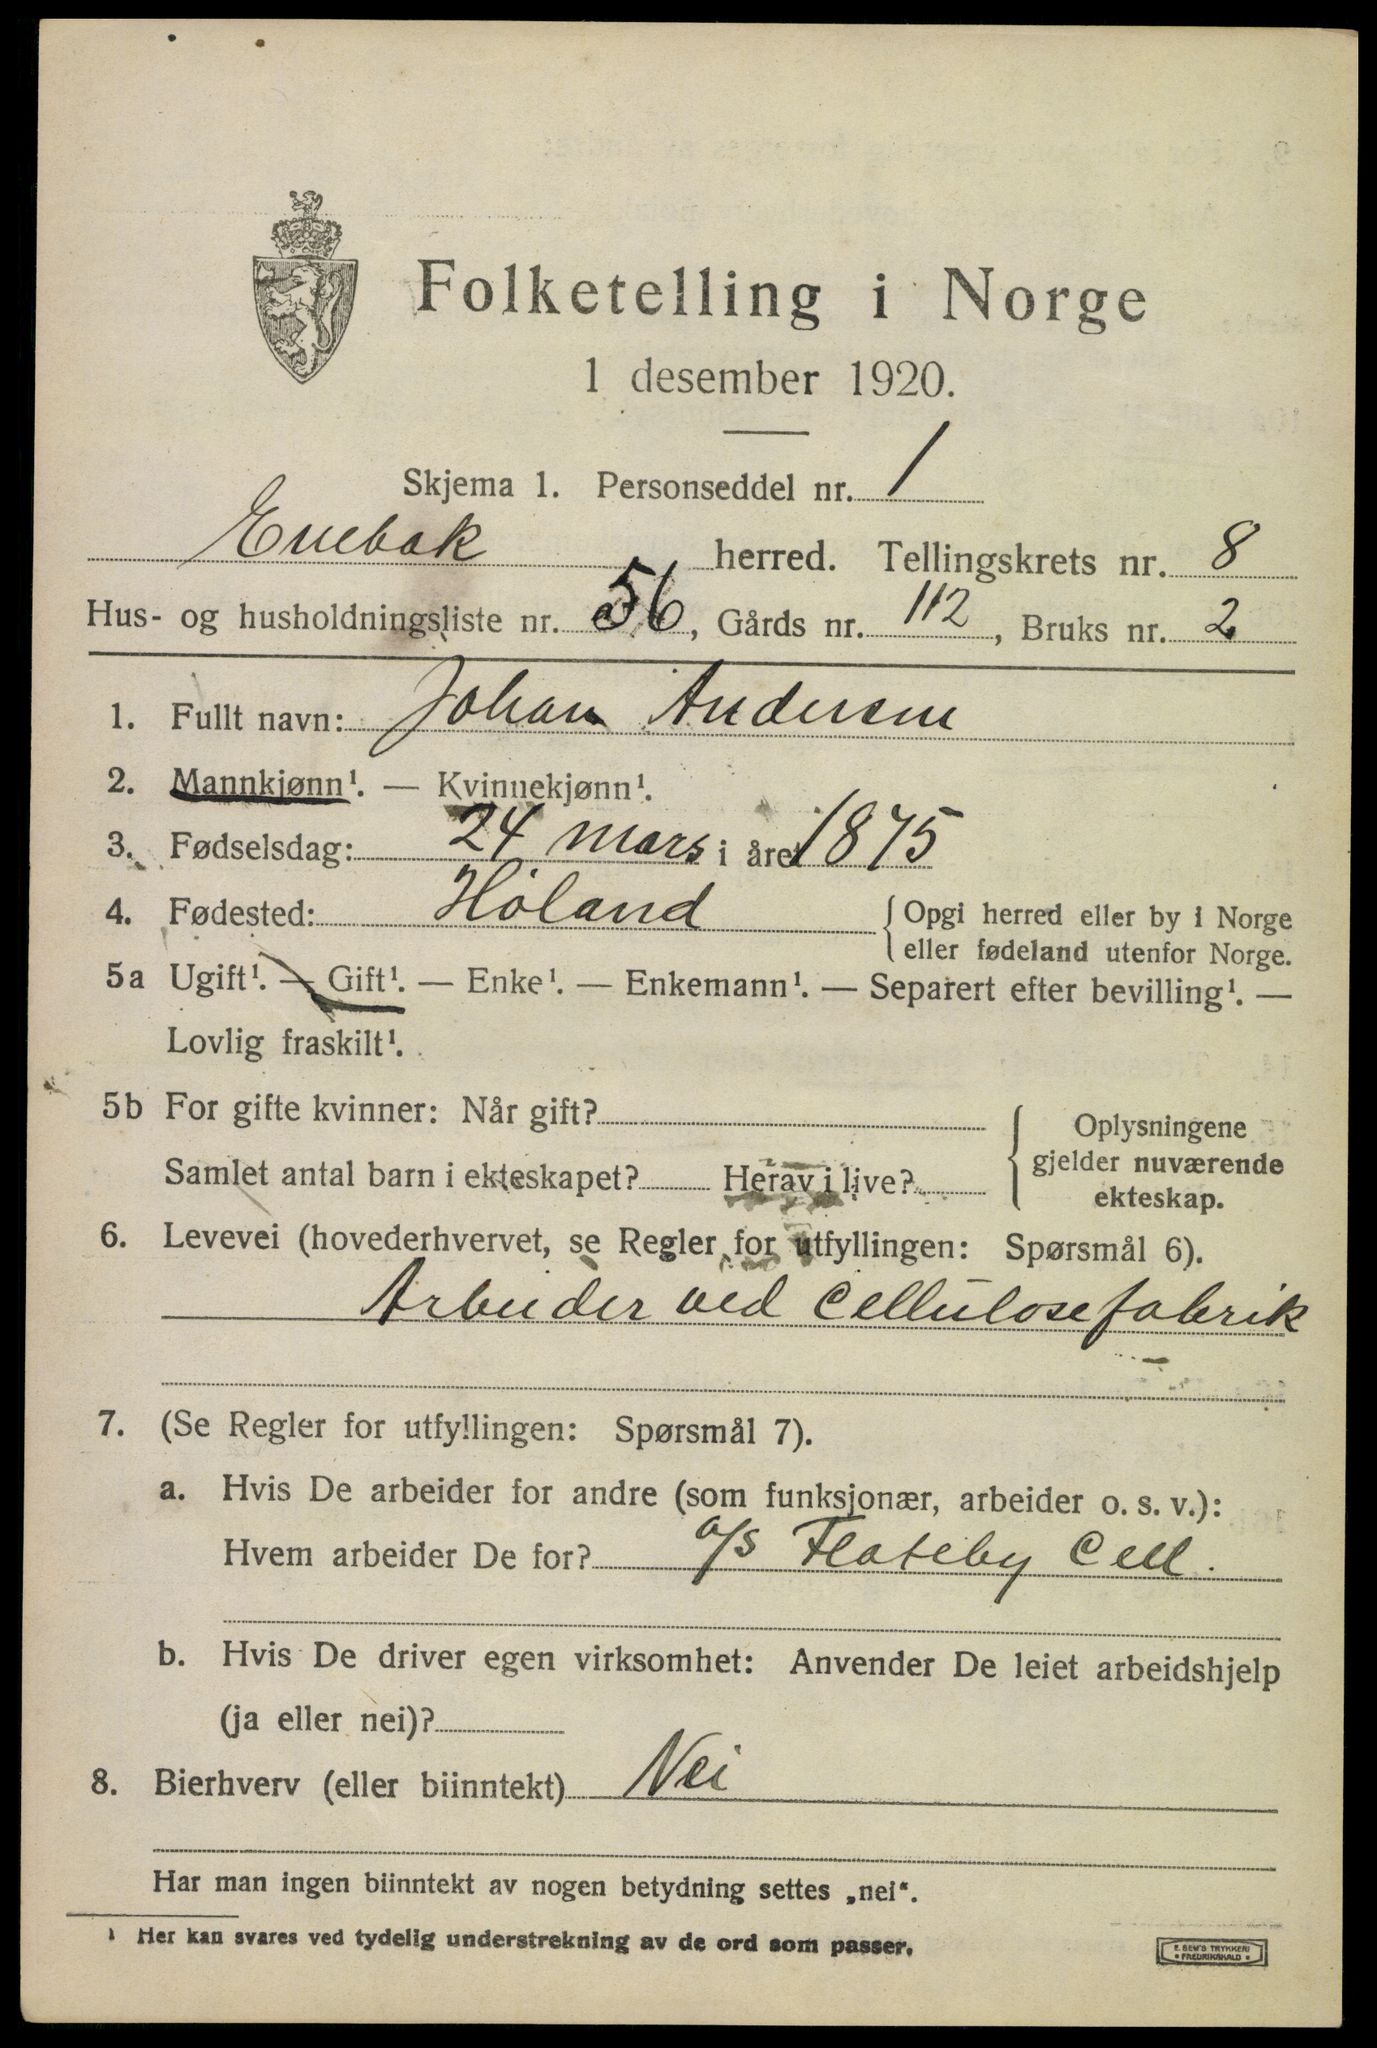 Folketelling i Norge
1 desember 1920.
Skjema 1. Personseddel nr. 1
Enebak herred. Tellingskrets nr. 8
Hus- og husholdningsliste nr. 56, Gårds nr. 112, Bruks nr. 2
1. Fullt navn: Johan Andersen
2. Mannkjønn¹. — Kvinnekjønn¹.
3. Fødselsdag: 24 mars i året 1875
4. Fødested: Høland { Opgi herred eller by i Norge
eller fødeland utenfor Norge.
5a Ugift¹. — Gift¹. — Enke¹. — Enkemann¹. — Separert efter bevilling¹. —
Lovlig fraskilt¹.
5b For gifte kvinner: Når gift? { Oplysningene
gjelder nuværende
Samlet antal barn i ekteskapet? Herav i live? ekteskap.
6. Levevei (hovederhvervet, se Regler for utfyllingen: Spørsmål 6).
Arbeider ved Cellulosefabrik
7. (Se Regler for utfyllingen: Spørsmål 7).
a. Hvis De arbeider for andre (som funksjonær, arbeider o. s. v.):
Hvem arbeider De for? a/s Flateby Cell.
b. Hvis De driver egen virksomhet: Anvender De leiet arbeidshjelp
(ja eller nei)?
8. Bierhverv (eller biinntekt) Nei
Har man ingen biinntekt av nogen betydning settes „nei“.
¹ Her kan svares ved tydelig understrekning av de ord som passer.
E. SEM'S TRYKKERI
• FREDRIKSHALD •